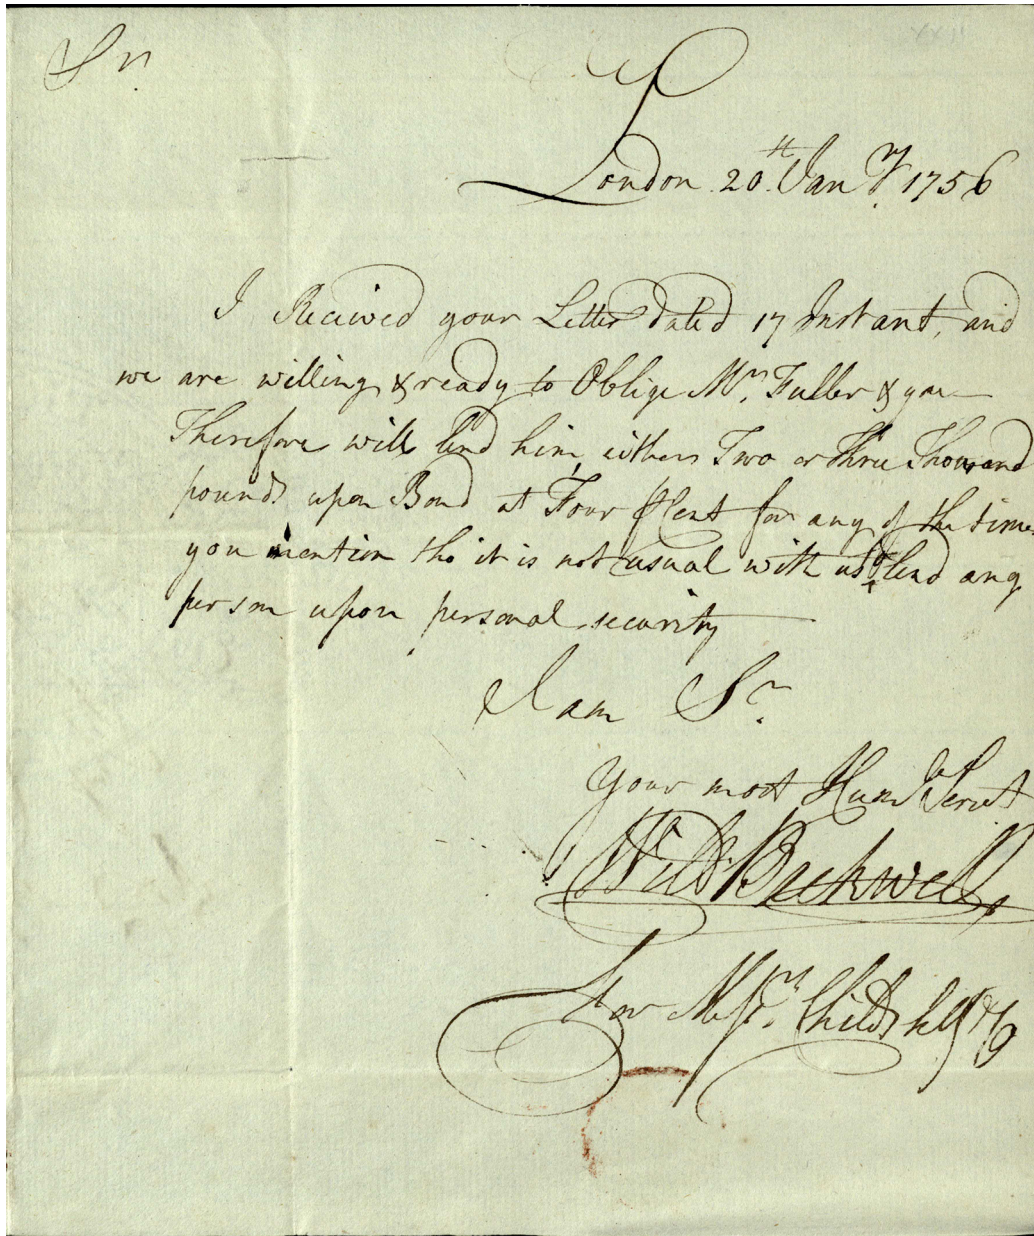 Sr.
London 20th. Jany. 1756
I Recived your Letter dated 17 Instant, and
we are willing & ready to Oblige Mr. Fuller & you
Therefore will lend him either Two or Three Thousand
pounds upon Bond at Four P Cent for any of the times
you mention tho it is not usual with us to lend any
person upon personal security
I am Sr.
Your most Hume Servt
Backwell
For Messrs. Child & Co